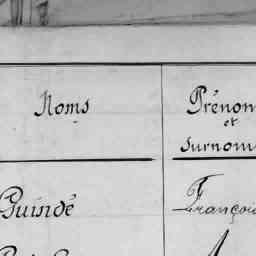 Noms
Prénom
et
surnom
Guindé
Françoi